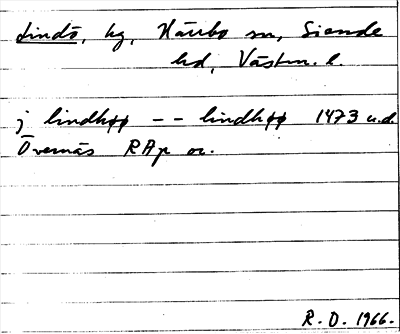 Lindö, hg, Harbo sn, Siende
hd, Västm. l.
j lindhøø -- lindhøø 1473 u.d.
Övernäs RAp or.
R. D. 1966.